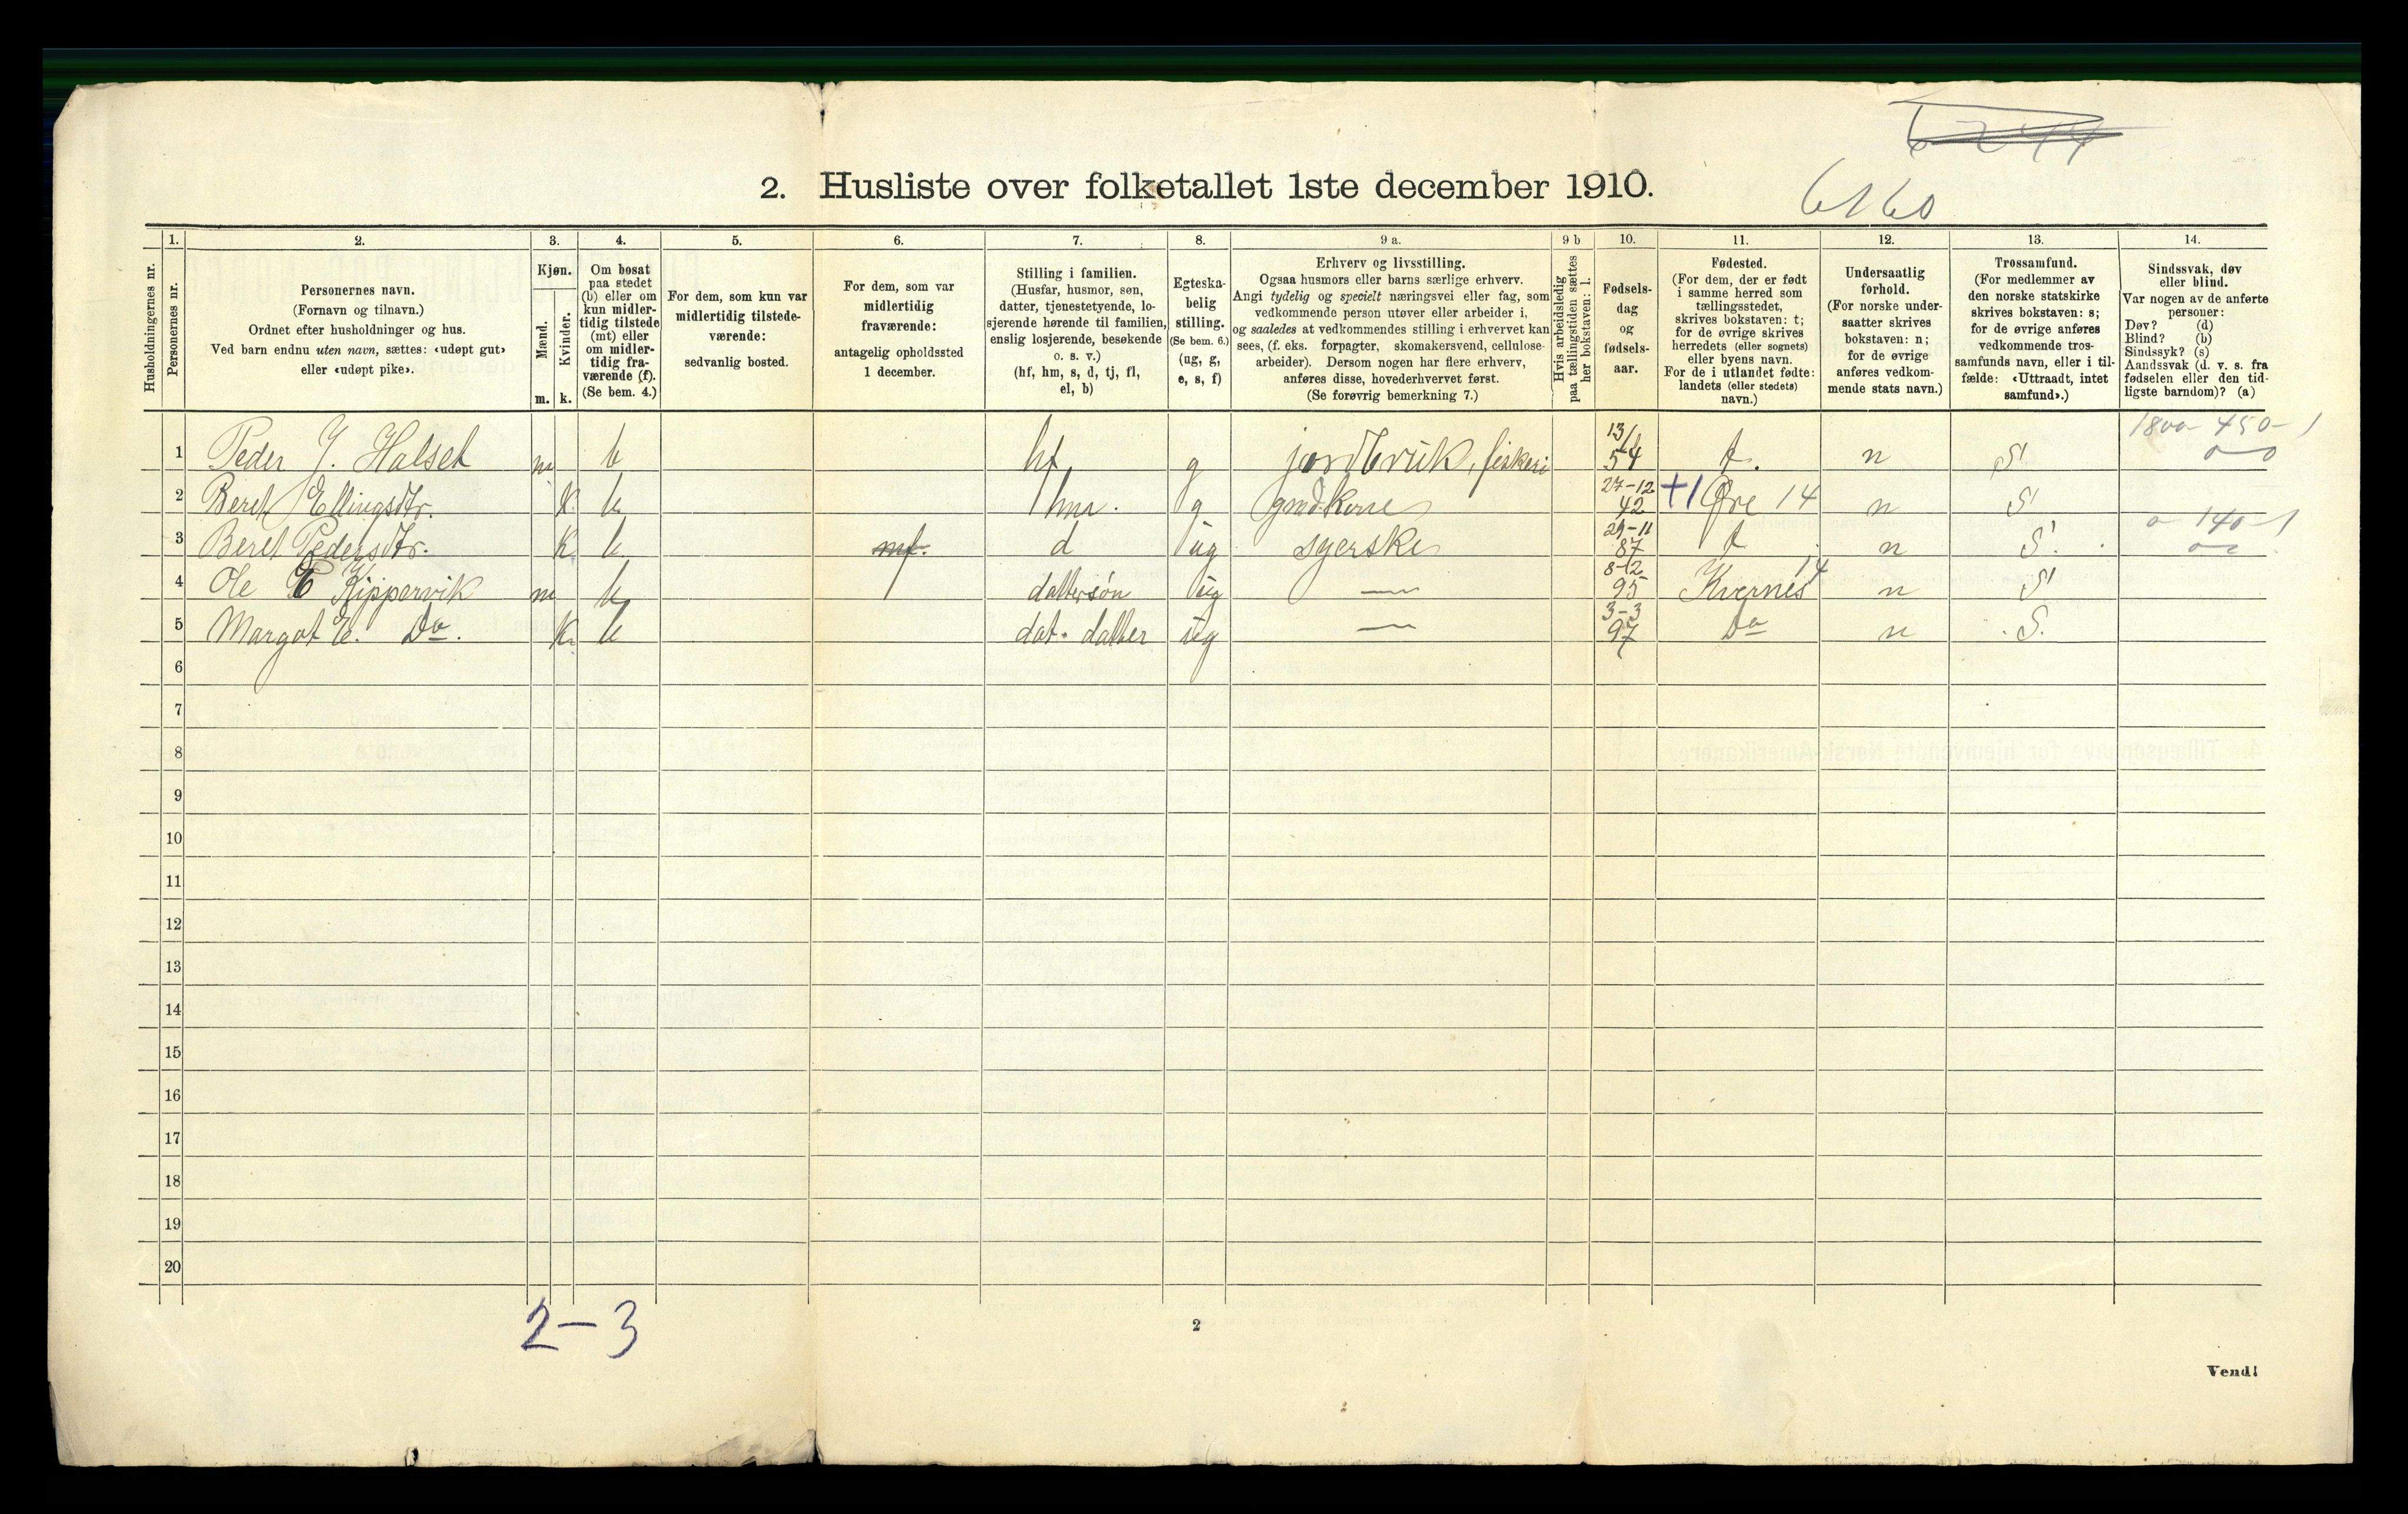 6160
2. Husliste over folketallet 1ste december 1910.
Husholdningernes nr.
1. Personernes nr.
2. Personernes navn. (Fornavn og tilnavn.) Ordnet efter husholdninger og hus. Ved barn endnu uten navn, sættes: «udøpt gut» eller «udøpt pike».
3. Kjøn. Mænd. m. Kvinder. k.
4. Om bosat paa stedet (b) eller om kun midlertidig tilstede (mt) eller om midlertidig fraværende (f). (Se bem. 4.)
5. For dem, som kun var midlertidig tilstedeværende: sedvanlig bosted.
6. For dem, som var midlertidig fraværende: antagelig opholdssted 1 december.
7. Stilling i familien. (Husfar, husmor, søn, datter, tjenestetyende, losjerende hørende til familien, enslig losjerende, besøkende o. s. v.) (hf, hm, s, d, tj, fl, el, b)
8. Egteskabelig stilling. (Se bem. 6.) (ug, g, e, s, f)
9 a. Erhverv og livsstilling. Ogsaa husmors eller barns særlige erhverv. Angi tydelig og specielt næringsvei eller fag, som vedkommende person utøver eller arbeider i, og saaledes at vedkommendes stilling i erhvervet kan sees, (f. eks. forpagter, skomakersvend, cellulosearbeider). Dersom nogen har flere erhverv, anføres disse, hovederhvervet først. (Se forøvrig bemerkning 7.)
9 b Hvis arbeidsledig paa tællingstiden sættes her bokstaven: l.
10. Fødselsdag og fødselsaar.
11. Fødested. (For dem, der er født i samme herred som tællingsstedet, skrives bokstaven: t; for de øvrige skrives herredets (eller sognets) eller byens navn. For de i utlandet fødte: landets (eller stedets) navn.)
12. Undersaatlig forhold. (For norske undersaatter skrives bokstaven: n; for de øvrige anføres vedkommende stats navn.)
13. Trossamfund. (For medlemmer av den norske statskirke skrives bokstaven: s; for de øvrige anføres vedkommende trossamfunds navn, eller i tilfælde: «Uttraadt, intet samfund».)
14. Sindssvak, døv eller blind. Var nogen av de anførte personer: Døv? (d) Blind? (b) Sindssyk? (s) Aandssvak (d. v. s. fra fødselen eller den tidligste barndom)? (a)
1 Peder J. Halset m b hf g jordbruk, fiskeri 13/4 54 t. n S 1800 - 450 - 1
2 Beret Ellingsdtr. k b hm. g gmdkone 27-12 42 +1 Øre 14 n S
3 Beret Pedersdtr. k b mf. d ug syerske 29-11 87 t n S. 0 140 - 1
4 Ole E Kippervik m b dattersøn ug — 8-12 95 Kvernes 14 n S
5 Margot E. Do. k b dat. datter ug — 3-3 97 Do n S.
6
7
8
9
10
11
12
13
14
15
16
17
18
19
20
2-3
2
Vend!